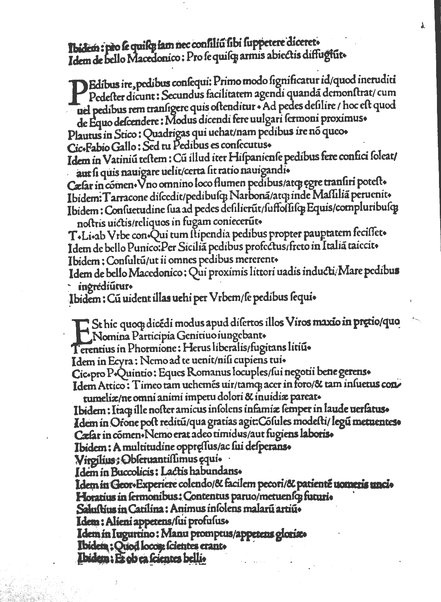 Ibidem: pro se quisq̃ iam nec consiliũ sibi suppetere diceret.
Idem de bello Macedonico: Pro se quisq; armis abiectis diffugiũt.
PEdibus ire, pedibus consequi: Primo modo significatur id/quod ineruditi
Pedester dicunt: Secundus facilitatem agendi quandã demonstrat/cum
uel pedibus rem transigere quis ostenditur. Ad pedes desilire/hoc est quod
de Equo descendere: Modus dicendi fere uulgari sermoni proximus.
Plautus in Stico: Quadrigas qui uehat/nam pedibus ire nõ queo.
Cic. Fabio Gallo: Sed tu Pedibus es consecutus.
Idem in Vatiniũ testem: Cũ illud iter Hispaniense pedibus fere confici soleat/
aut si quis nauigare uelit/certa sit ratio nauigandi.
Cæsar in cõmen. Vno omnino loco flumen pedibus/atq; ęgre transiri potest.
Ibidem: Tarracone discedit/pedibusq; Narbonã/atq; inde Massiliã peruenit.
Ibidem: Consuetudine sua ad pedes desilierũt/suffossisq; Equis/compluribusq;
nostris uictis/reliquos in fugam coniecerũt.
T. Li. ab Vrbe con. Qui tum stipendia pedibus propter pauptatem fecisset.
Idem de bello Punico: Per Siciliã pedibus profectus/freto in Italiã taiecit.
Ibidem: Consultũ/ut ii omnes pedibus mererent.
Idem de bello Macedonico: Qui proximis littori uadis inducti/Mare pedibus
ingrediũtur.
Ibidem: Cũ uident illas uehi per Vrbem/se pedibus sequi.
ESt hic quoq; dicẽdi modus apud disertos illos Viros maxio in pretio/quo
Nomina Participia Genitiuo iungebant.
Terentius in Phormione: Herus liberalis/fugitans litiũ.
Idem in Ecyra: Nemo ad te uenit/nisi cupiens tui.
Cic. pro P. Quintio: Eques Romanus locuples/sui negotii bene gerens.
Idem Attico: Timeo tam uehemẽs uir/tamq; acer in foro/& tam insuetus con
tumeliæ/ne omni animi impetu dolori & inuidiæ pareat.
Ibidem: Itaq; ille noster amicus insolens infamiæ semper in laude uersatus.
Idem in Ofone post reditũ/qua gratias agit: Cõsules modesti/legũ metuentes.
Cæsar in cõmen. Nemo erat adeo timidus/aut fugiens laboris.
Ibidem: A multitudine oppręssus/ac sui desperans.
Virgilius: Obseruantissimus equi.
Idem in Buccolicis: Lactis habundans.
Idem in Geor. Experiere colendo/& facilem pecori/& patientẽ uomeris unci.
Horatius in sermonibus: Contentus paruo/metuensq; futuri.
Salustius in Catilina: Animus insolens malarũ artiũ.
Idem: Alieni appetens/sui profusus.
Idem in Iugurtino: Manu promptus/appetens gloriæ.
Ibidem: Quod locoq; scientes erant.
Ibidem: Ex ob ea scientes belli.